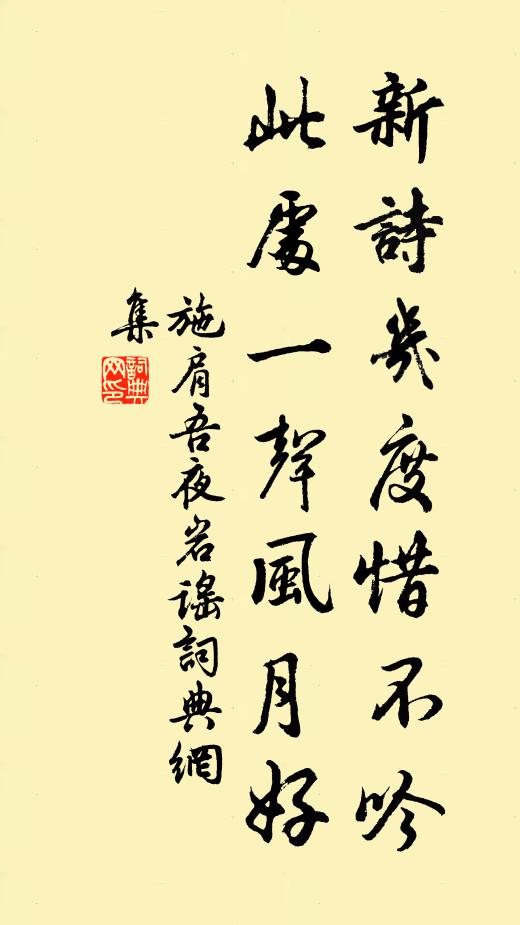 新詩幾度惜不吟
此處一聲風月好
施肩吾夜岩謠詞典網
集
詞典网印